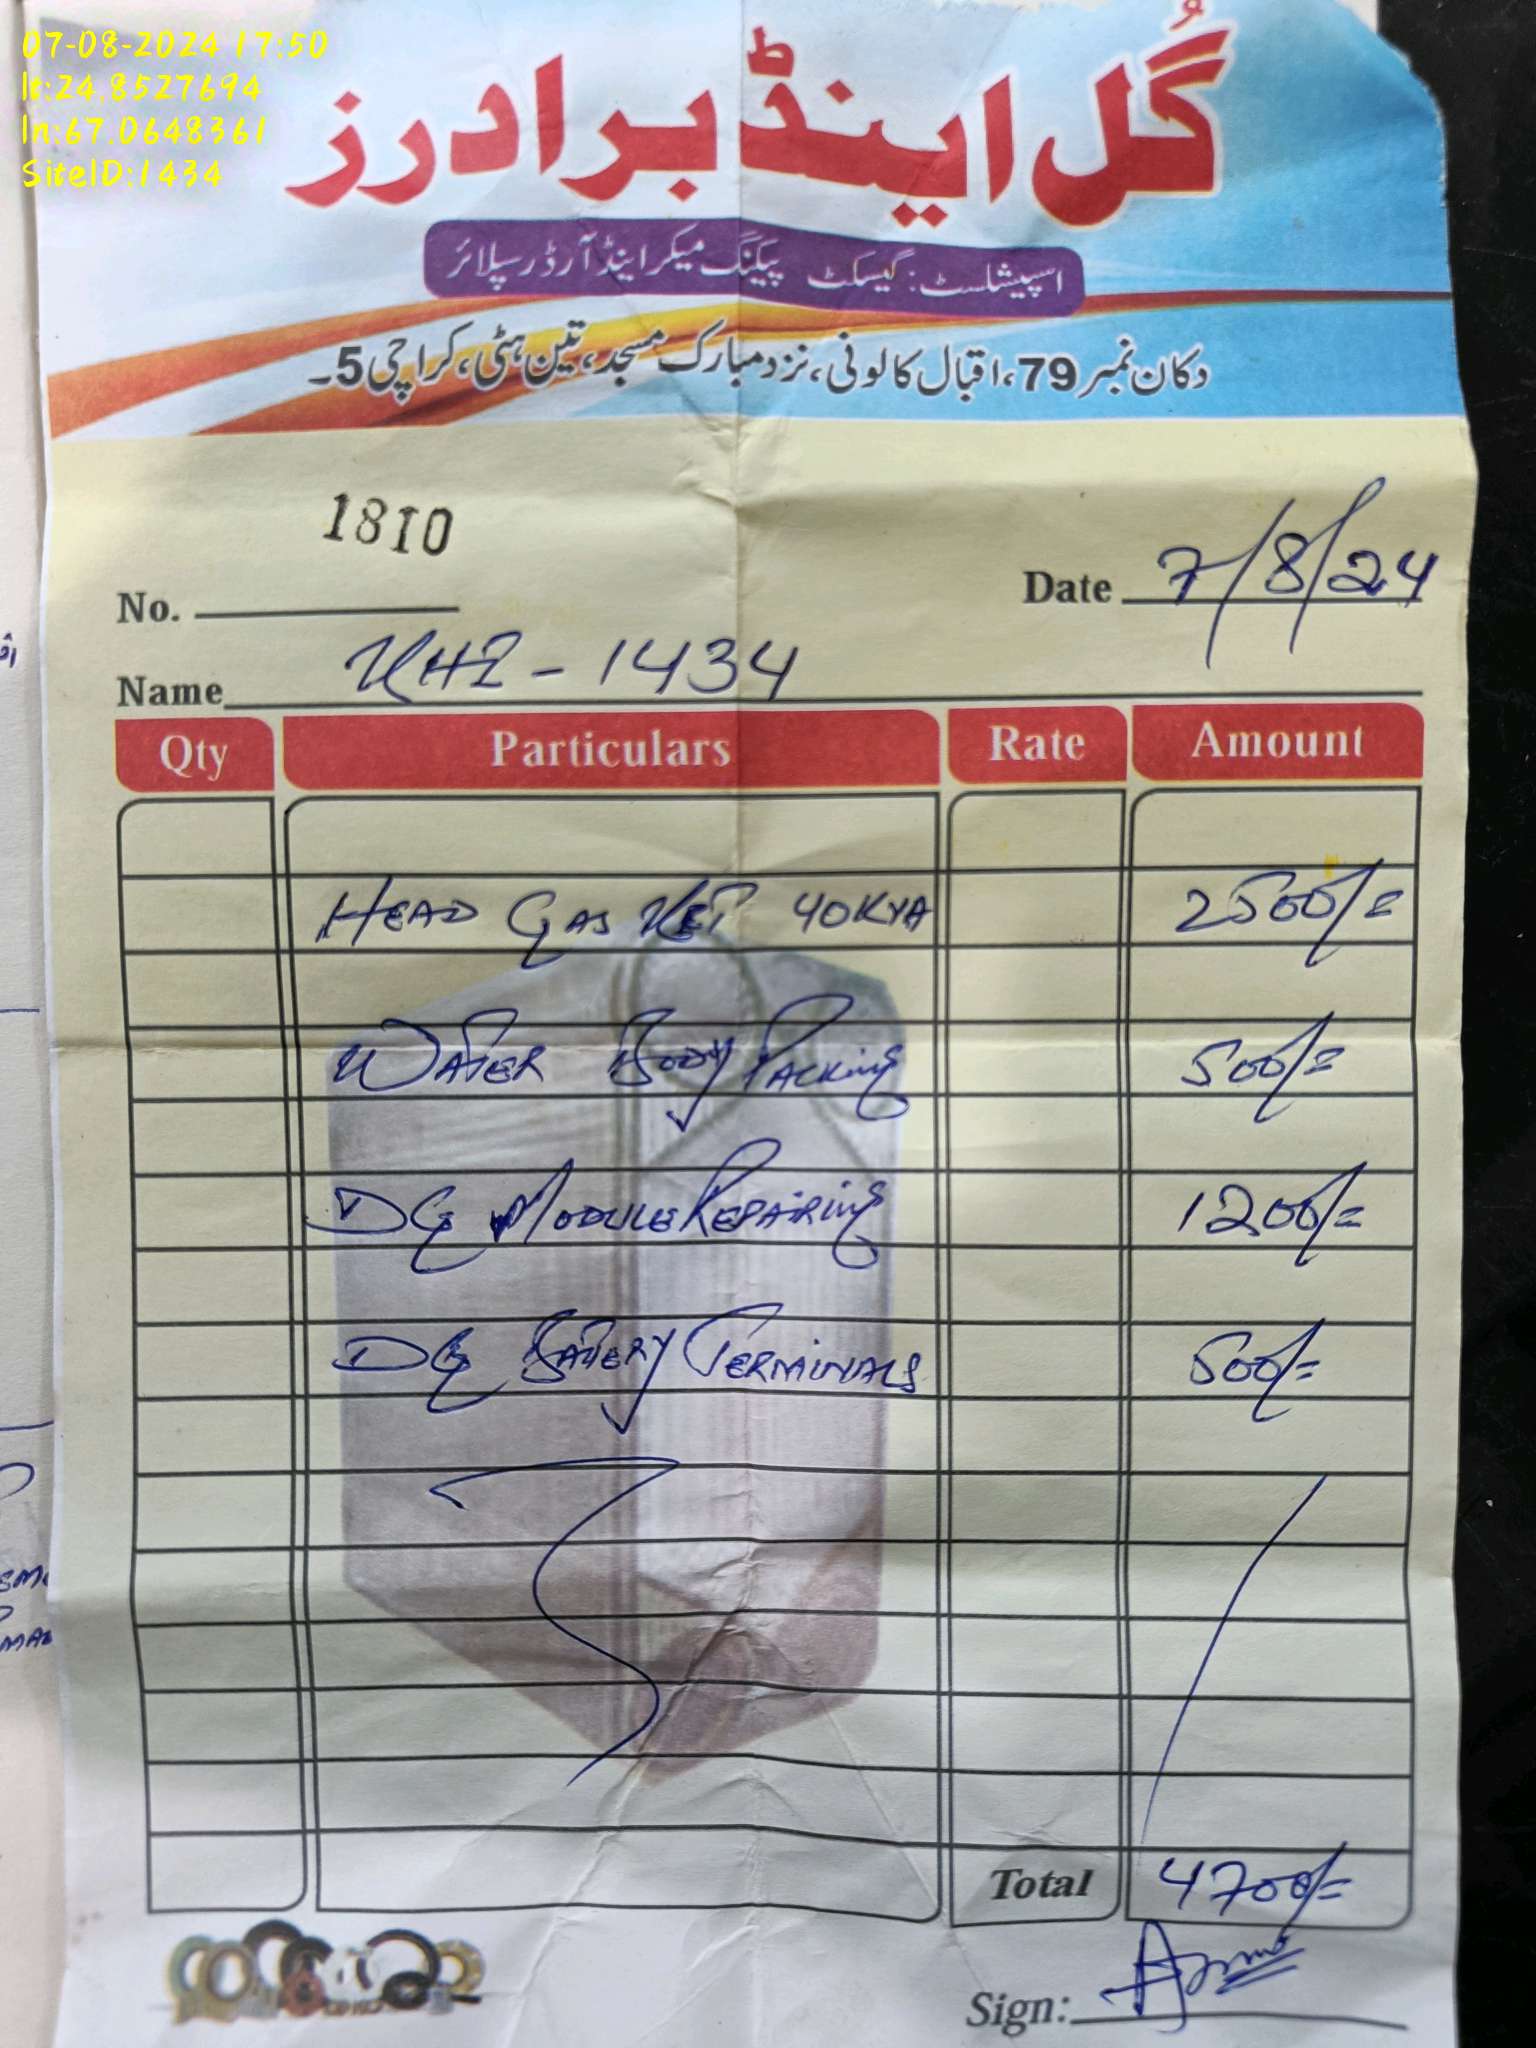 07-08-2024 17:50
lt:24.8527694
ln:67.0648361
SiteID:1434
گل اینڈ برادرز
اسپیشلسٹ: گیسکٹ پیکنگ میکر اینڈ آرڈر سپلائر
دکان نمبر 79، اقبال کالونی، نزد مبارک مسجد، تین ہٹی، کراچی 5۔
1810
No.
Date 7/8/24
Name KHI-1434
Qty Particulars Rate Amount
HEAD GASKET 40KVA 2500/=
WATER BODY PACKING 500/=
DG MODULE REPAIRING 1200/=
DG BATTERY TERMINALS 500/=
Total 4700/=
Sign: